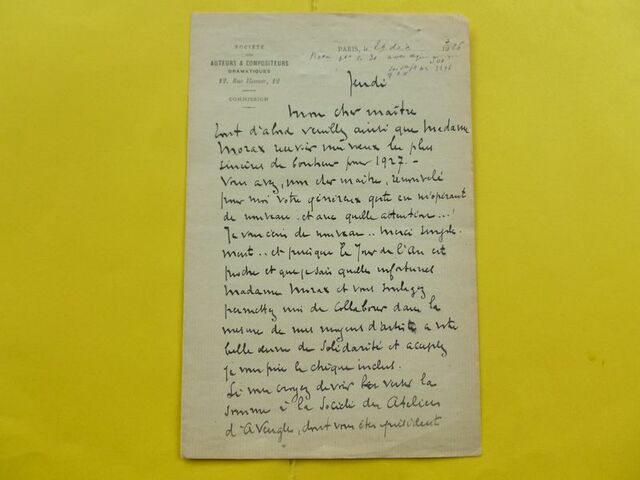 SOCIÉTÉ
DES
AUTEURS & COMPOSITEURS
DRAMATIQUES
12, Rue Henner, 12
COMMISSION
PARIS, le 29 dec 1926
le 30
Jeudi
Mon cher maître
Tout d'abord veuillez ainsi que Madame
Morax recevoir mes vœux les plus
sincères de bonheur pour 1927. -
Vous avez, mon cher maître, renouvelé
pour moi votre généreux geste en m'opérant
de nouveau. et avec quelle attention...!
Je vous dis de nouveau.. merci simple-
ment... et puisque le Jour de l'An est
proche et que je sais quelles infortunes
Madame Morax et vous soulagez
permettez moi de collaborer dans la
mesure de mes moyens d'artiste à votre
belle œuvre de solidarité et acceptez
je vous prie le chèque inclus.
Si vous croyez devoir verser la
somme à la Société des Ateliers
d'Aveugles, dont vous êtes président